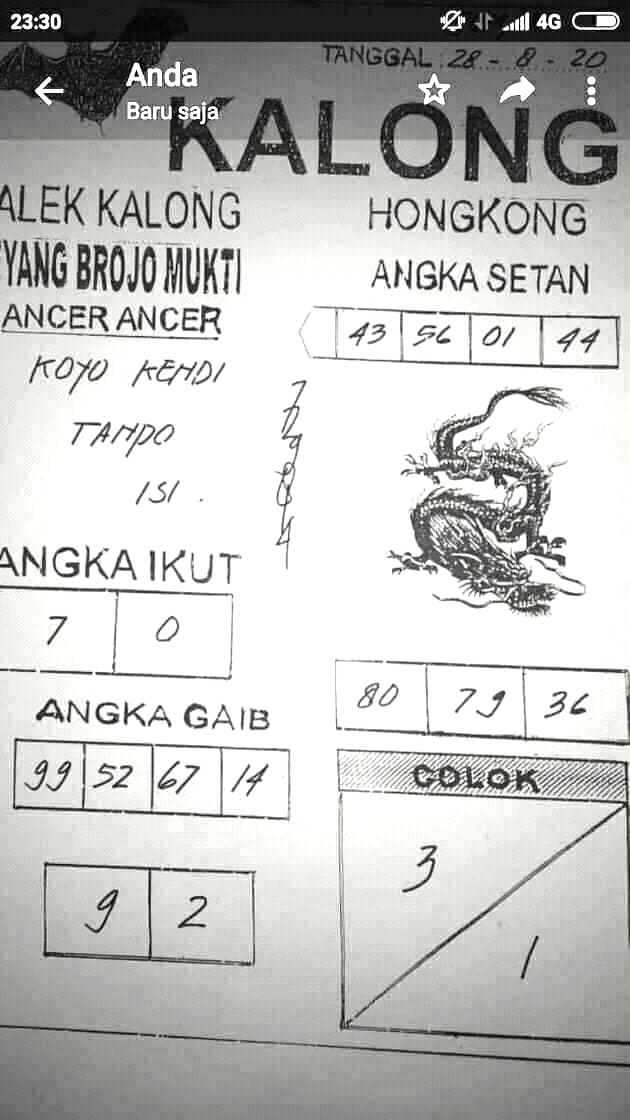 23:30 4G
Anda
Baru saja
TANGGAL : 28 - 8 - 20
KALONG
ALEK KALONG
YANG BROJO MUKTI
ANCER ANCER
KOYO KENDI
TANPO
ISI .
HONGKONG
ANGKA SETAN
43 56 01 44
ANGKA IKUT
7 0
80 79 36
ANGKA GAIB
99 52 67 14
9 2
COLOK
3
1